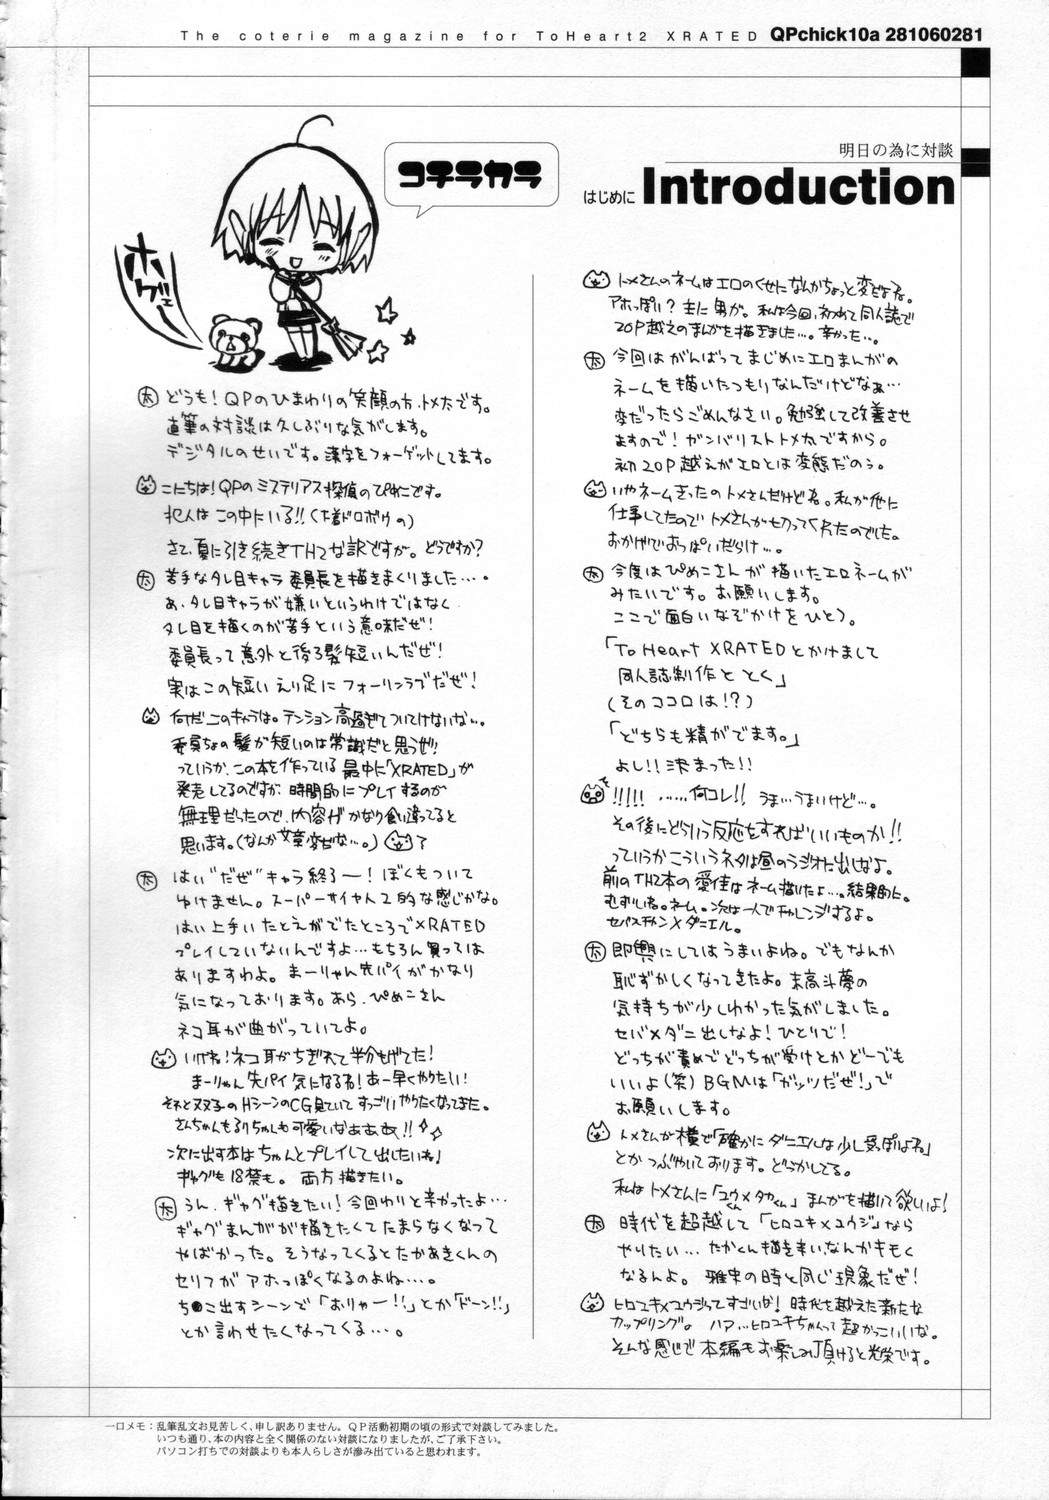 The coterie magazine for ToHeart2 XRATED QPchick10a 281060281
明日の為に対談
はじめに Introduction
コチラカラ
ホゲェー
どうも!QPのひまわりの笑顔の方、トメ太です。
直筆の対談は久しぶりな気がします。
デジタルのせいです。漢字をフォーゲットしてます。
こにちは!QPのミステリアス探偵のぴめこです。
犯人はこの中にいる!!(下着ドロボウの)
さて、夏に引き続きTH2な訳ですが。どうですか?
苦手なタレ目キャラ委員長を描きまくりました・・・。
あ、タレ目キャラが嫌いというわけではなく
タレ目を描くのが苦手という意味だぜ!
委員長って意外と後ろ髪短いんだぜ!
実はこの短いえり足にフォーリンラブだぜ!
何だこのキャラは。テンション高過ぎてついてけないな…。
委員ちょの髪が短いのは常識だと思うぜ!
っていうか、この本を作っている最中に「XRATED」が
発売してるのですが、時間的にプレイするのが
無理だったので、内容がかなり食い違ってると
思います。(なんか文章変だな…。)
はい"だぜ"キャラ終了ー!ぼくもついて
ゆけません。スーパーサイヤ人2的な感じかな。
はい上手いたとえがでたところでXRATED
プレイしていないんですよ…もちろん買っては
ありますわよ。まーりゃん先パイがかなり
気になっております。あら、ぴめこさん
ネコ耳が曲がっていてよ。
いけね!ネコ耳がちぎれて半分もげてた!
まーりゃん先パイ気になるね!あー早くやりたい!
それと双子のHシーンのCG見ていてすっごいやりたくなってきた。
さんちゃんもるりちゃんも可愛いなぁあぁ!!
次に出す本はちゃんとプレイして出したいね!
ギャグも18禁も。両方描きたい。
うん、ギャグ描きたい!今回わりと辛かったよ…
ギャグまんがが描きたくてたまらなくなって
やばかった。そうなってくるとたかあきくんの
セリフがアホっぽくなるのよね…。
ち●こ出すシーンで「おりゃー!!」とか「ドーン!!」
とか言わせたくなってくる…。
トメさんのネームはエロのくせになんかちょっと変だよね。
アホっぽい?主に男が。私は今回、初めて同人誌で
20P越えのまんがを描きました…。辛かった…。
今回はがんばってまじめにエロまんがの
ネームを描いたつもりなんだけどなぁ…
変だったらごめんなさい。勉強して改善させ
ますので!ガンバリストトメ太ですから。
初20P越えがエロとは変態だのぅ。
いやネームきったのトメさんだけどね。私が他に
仕事してたのでトメさんが切ってくれたのでした。
おかげでおっぱいだらけ…。
今度はぴめこさんが描いたエロネームが
みたいです。お願いします。
ここで面白いなぞかけをひとつ。
「To Heart XRATEDとかけまして
同人誌制作ととく」
(そのココロは!?)
「どちらも精がでます。」
よし!!決まった!!
!!!!! ……何コレ!! うま…うまいけど…。
その後にどういう反応をすればいいものか!!
っていうかこういうネタは昼のラジオに出しなよ。
前のTH2本の愛佳はネーム描いたよ…。結果的に。
むずいね。ネーム。次は一人でチャレンジするよ。
セバスチャン×ダニエル。
即興にしてはうまいよね。でもなんか
恥ずかしくなってきたよ。末高斗夢の
気持ちが少しわかった気がしました。
セバ×ダニ出しなよ!ひとりで!
どっちが責めでどっちが受けとかどーでも
いいよ(笑)BGMは「ガッツだぜ!」で
お願いします。
トメさんが横で「確かにダニエルは少し受っぽいよね」
とかつぶやいております。どうかしてる。
私はトメさんに「ユウくん×タカくん」まんがを描いて欲しいよ!
時代を超越して「ヒロユキ×ユウジ」なら
やりたい…たかくん描き辛い、なんかキモく
なるんよ。雅史の時と同じ現象だぜ!
ヒロユキ×ユウジってすごいな!時代を越えた新たな
カップリング。ハァ…ヒロユキちゃんって超かっこいいな。
そんな感じで本編もお楽しみ頂けると光栄です。
一口メモ:乱筆乱文お見苦しく、申し訳ありません。QP活動初期の頃の形式で対談してみました。
いつも通り、本の内容と全く関係のない対談になりましたが、ご了承下さい。
パソコン打ちでの対談よりも本人らしさが滲み出ていると思われます。